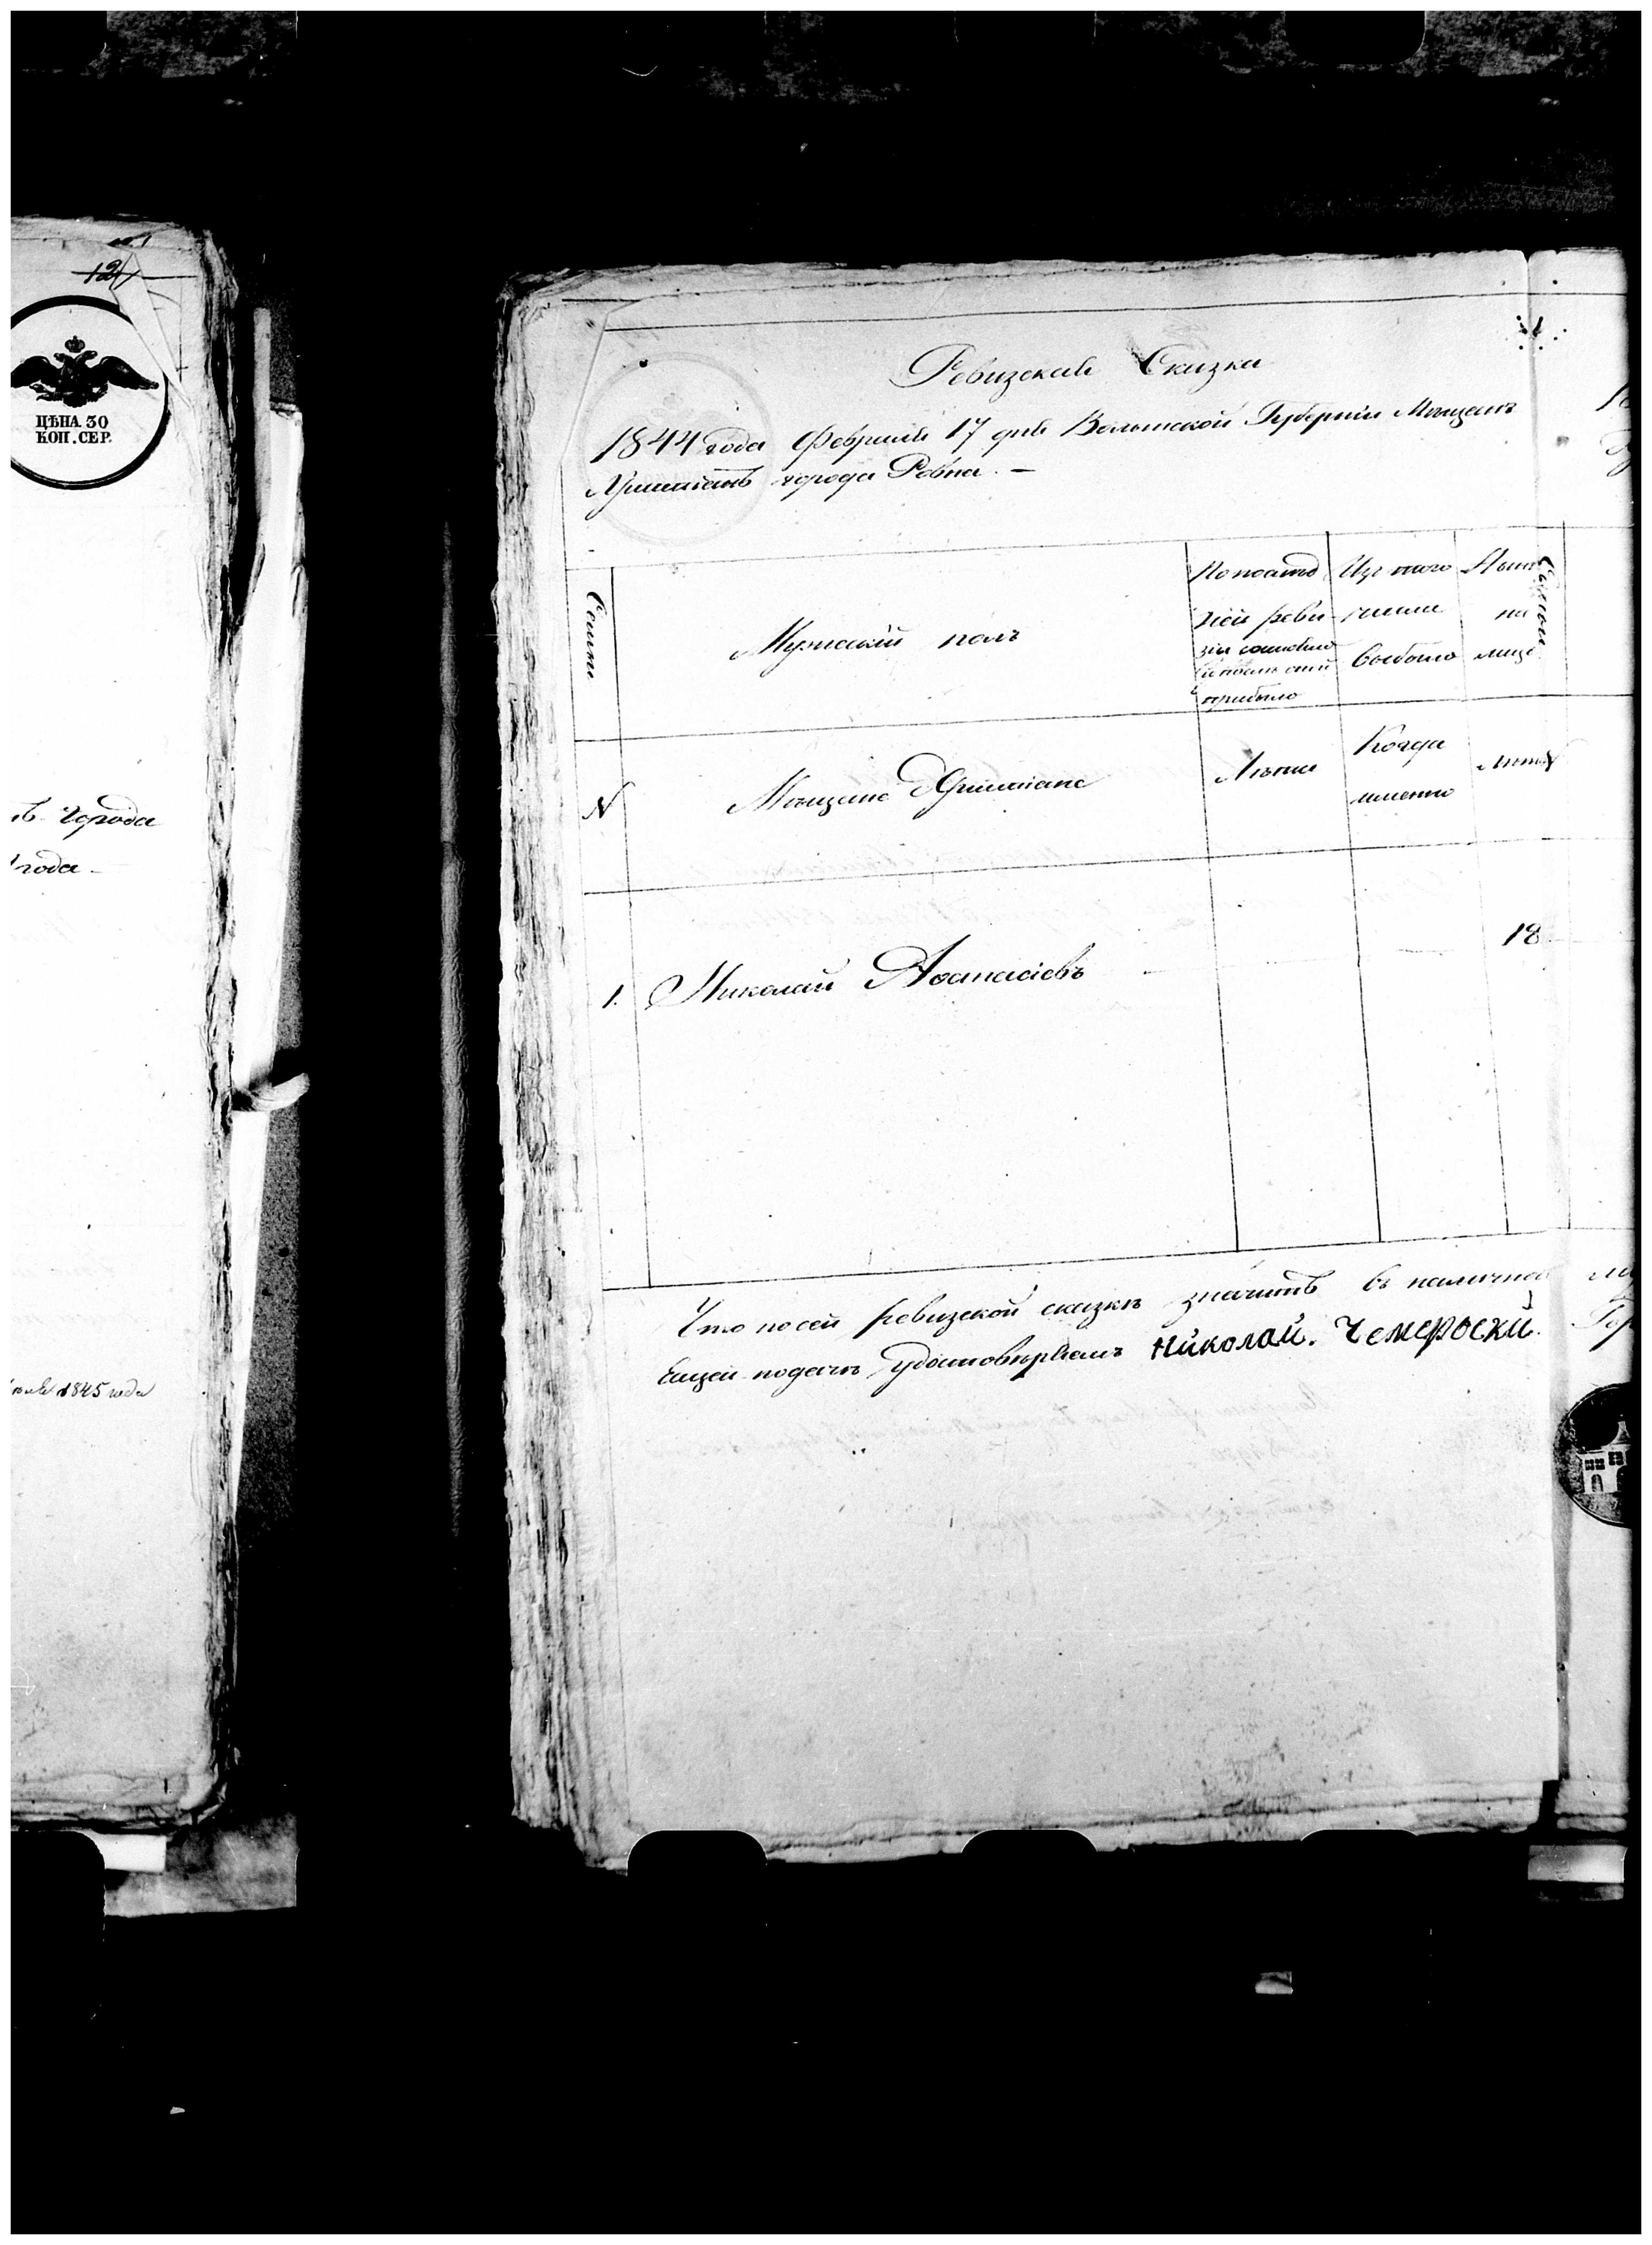 12
ЦѢНА 30
КОП. СЕР.
города
года
1845 года
Ревизская Сказка
1844 года Февраля 17 дня Волынской Губерніи Мещанъ
Христіанъ города Ровна. —
Семьи
Мужескій полъ
По послѣд
ней реви-
зіи состояло
и послѣ оной
прибыло
Изъ того
числа
выбыло
Нынѣ
на
лицо
N
Мѣщане Христіане
Лѣта
Когда
именно
Лѣта
1. Николай Афанасіевъ
18
Что по сей ревизской сказкѣ значитъ въ налично
удостовѣряемъ Николай. Чемероски